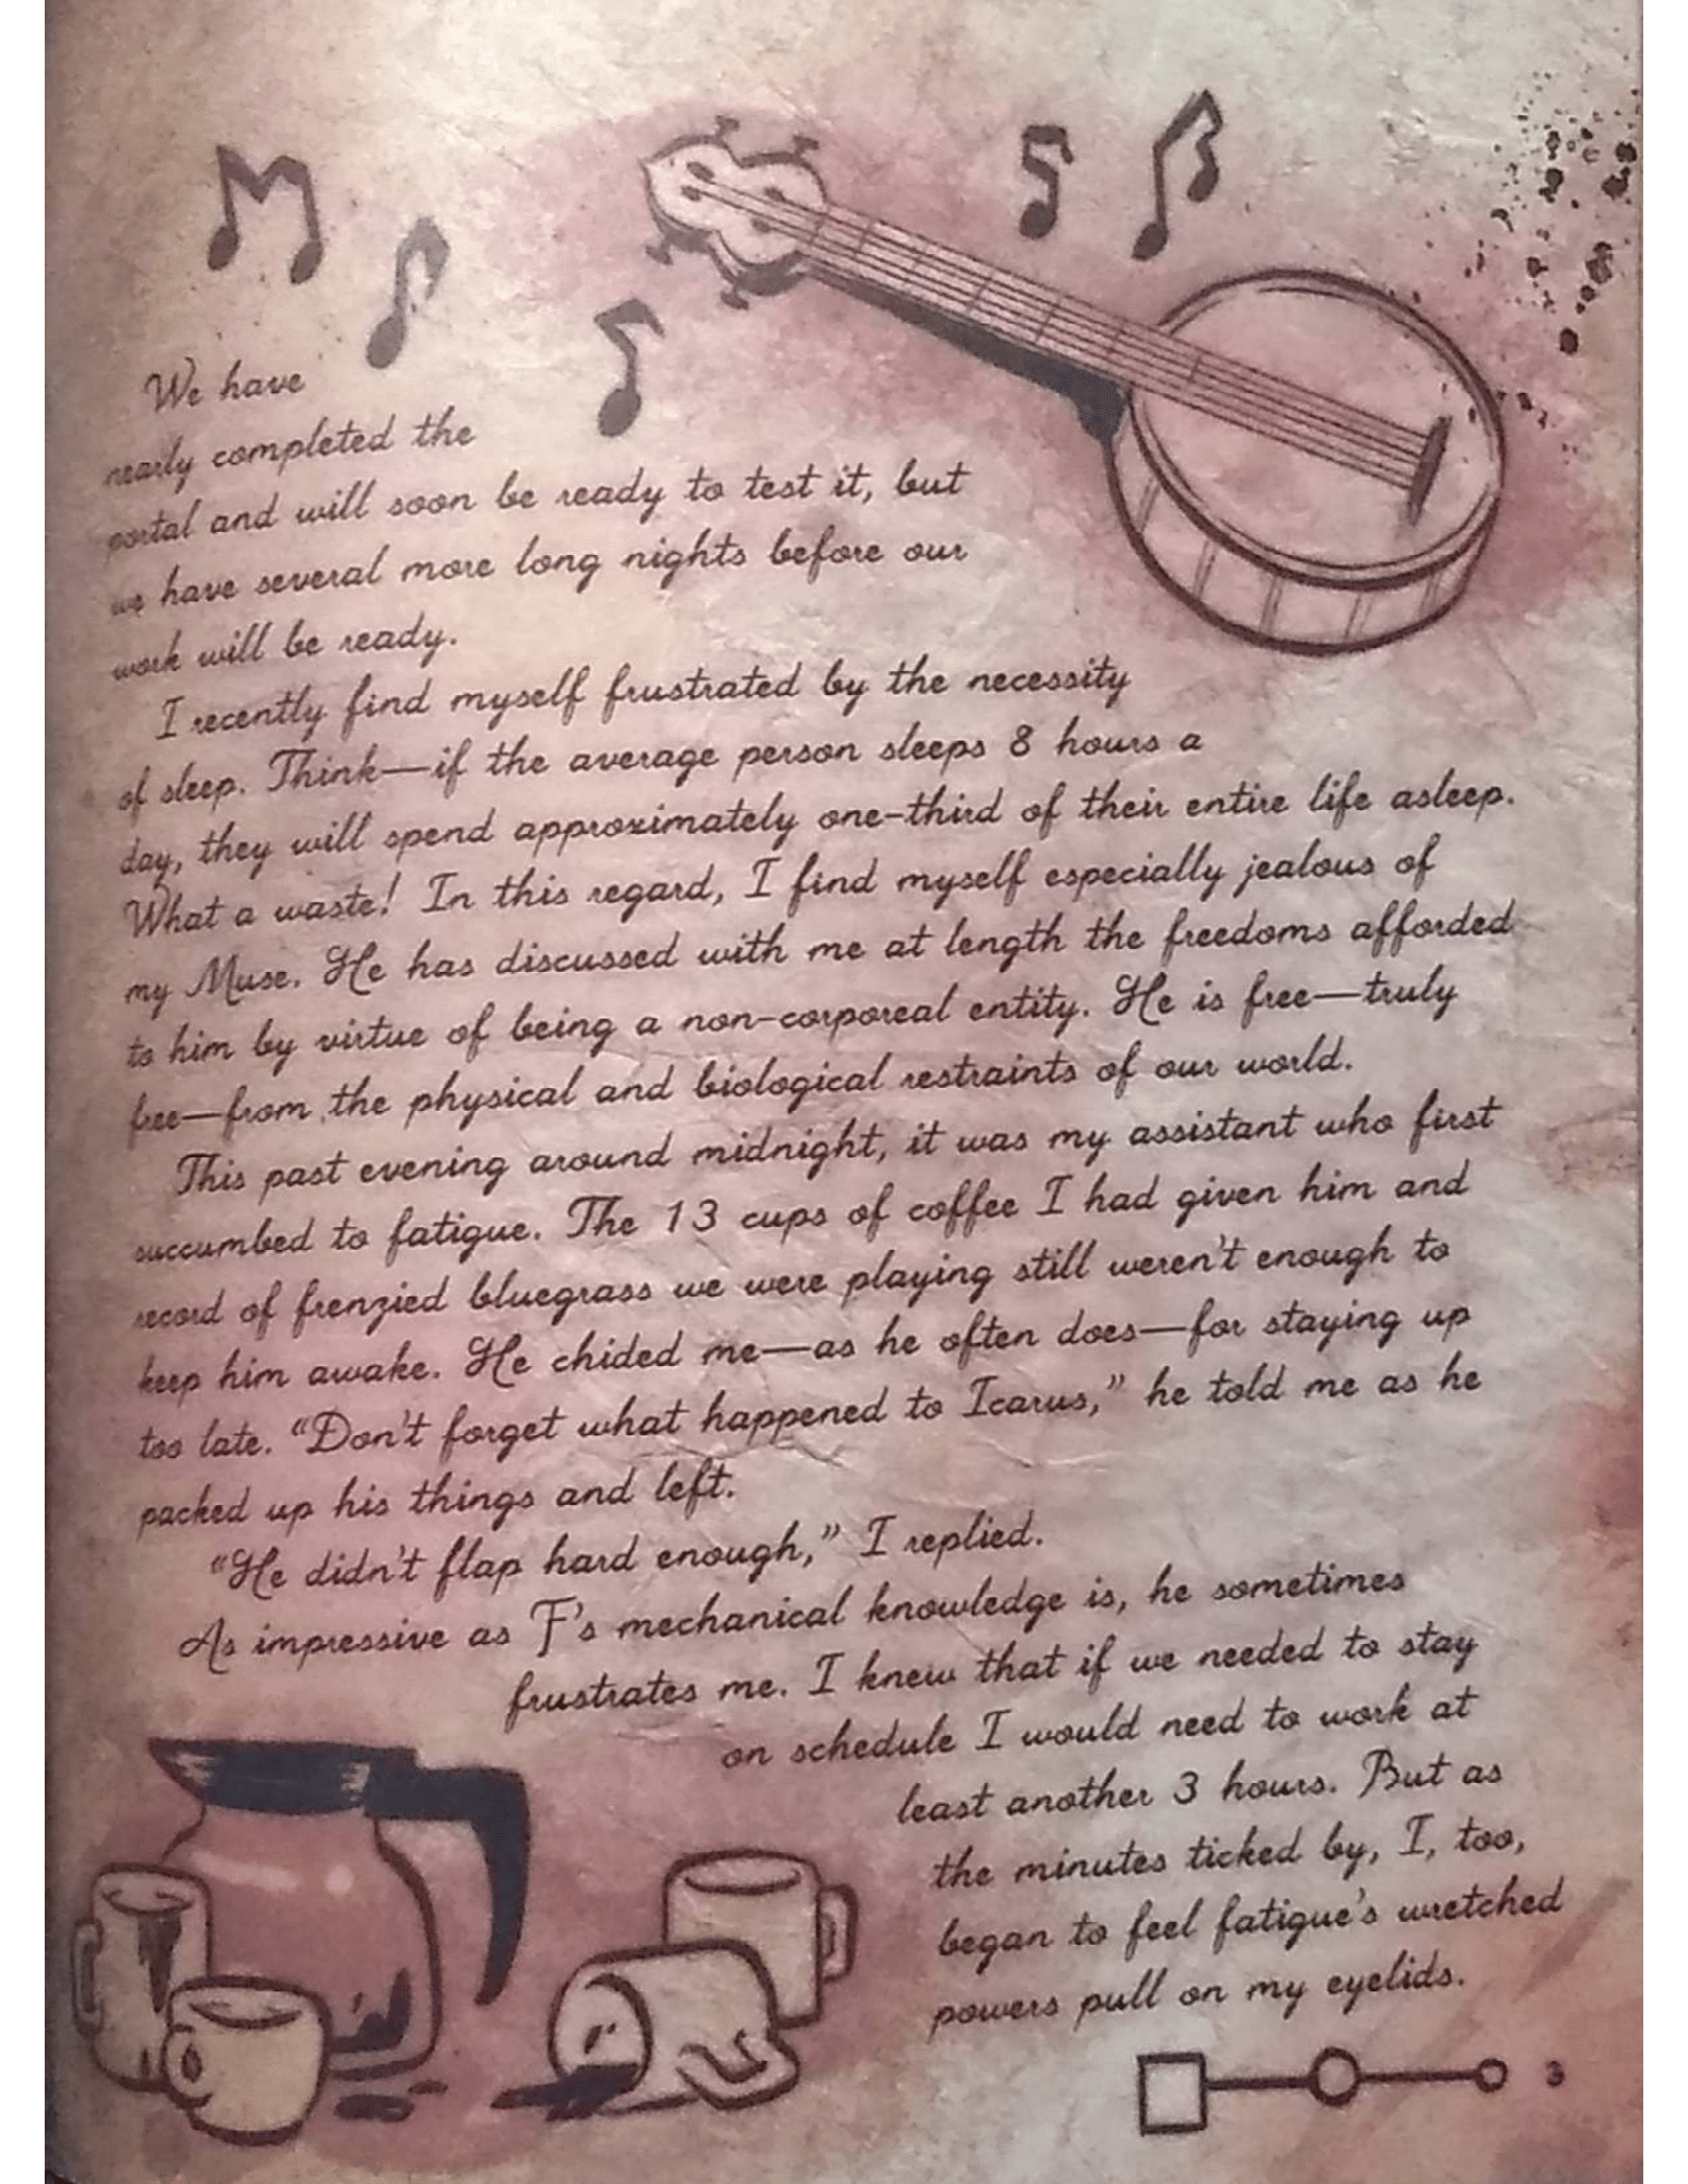 We have
nearly completed the
portal and will soon be ready to test it, but
we have several more long nights before our
work will be ready.
I recently find myself frustrated by the necessity
of sleep. Think—if the average person sleeps 8 hours a
day, they will spend approximately one-third of their entire life asleep.
What a waste! In this regard, I find myself especially jealous of
my Muse. He has discussed with me at length the freedoms afforded
to him by virtue of being a non-corporeal entity. He is free—truly
free—from the physical and biological restraints of our world.
This past evening around midnight, it was my assistant who first
succumbed to fatigue. The 13 cups of coffee I had given him and
record of frenzied bluegrass we were playing still weren't enough to
keep him awake. He chided me—as he often does—for staying up
too late. “Don't forget what happened to Icarus,” he told me as he
packed up his things and left.
“He didn't flap hard enough,” I replied.
As impressive as F's mechanical knowledge is, he sometimes
frustrates me. I knew that if we needed to stay
on schedule I would need to work at
least another 3 hours. But as
the minutes ticked by, I, too,
began to feel fatigue's wretched
powers pull on my eyelids.
3